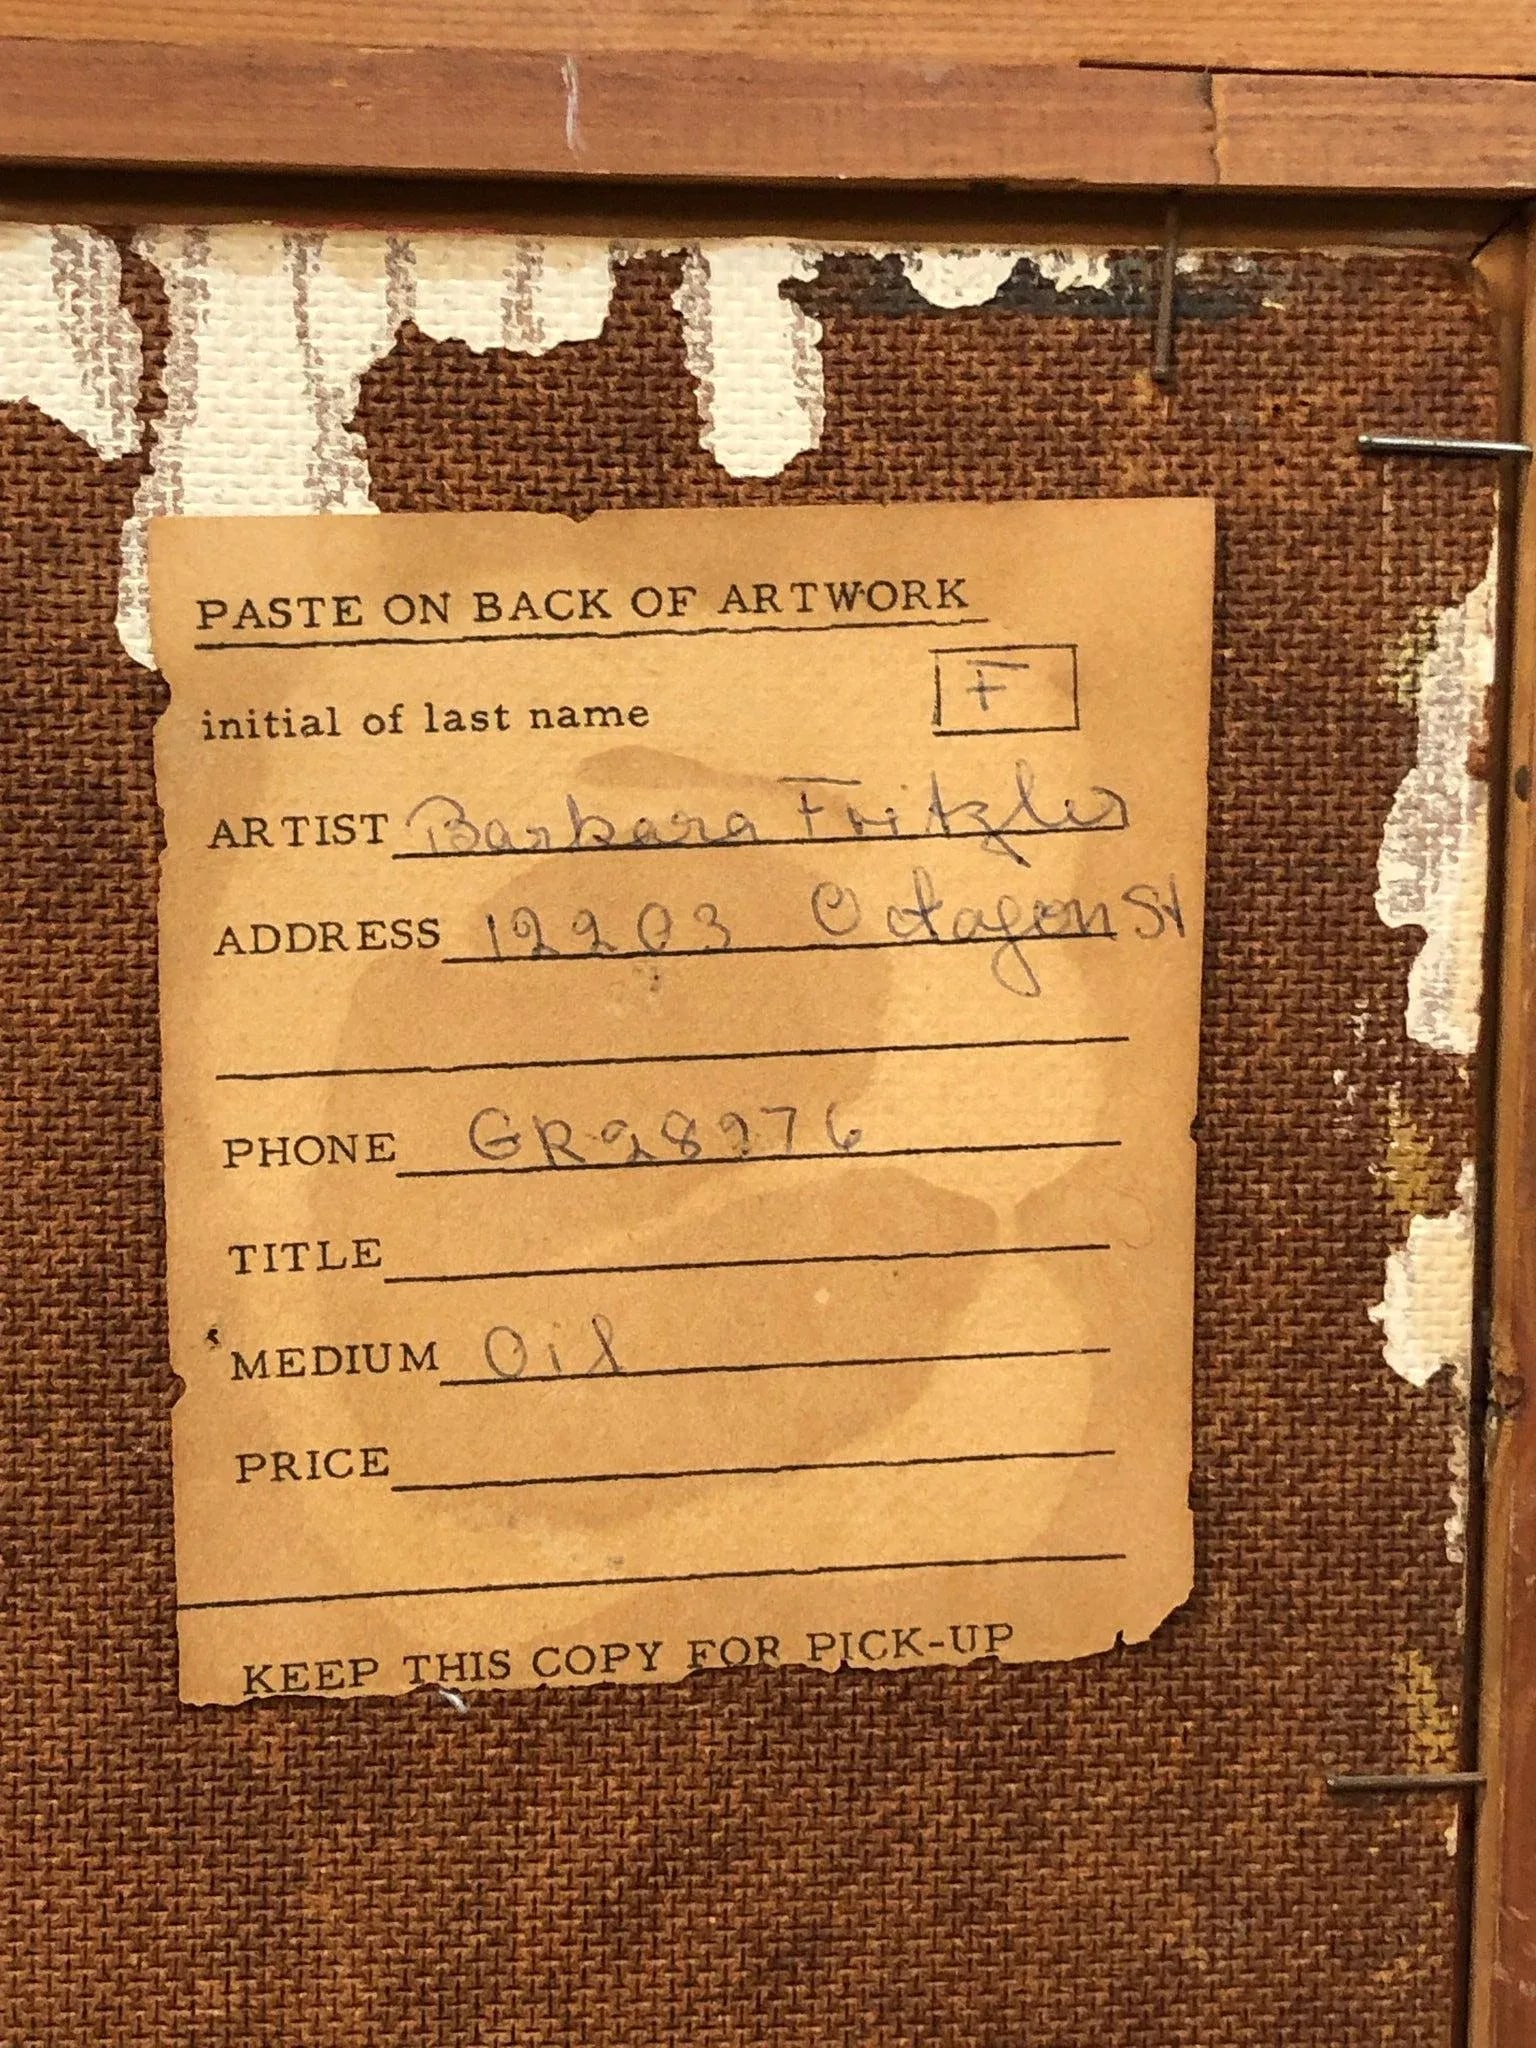 PASTE ON BACK OF ARTWORK
initial of last name F
ARTIST Barbara Fritzler
ADDRESS 12203 Octagon St
PHONE GR28276
TITLE
MEDIUM Oil
PRICE
KEEP THIS COPY FOR PICK-UP